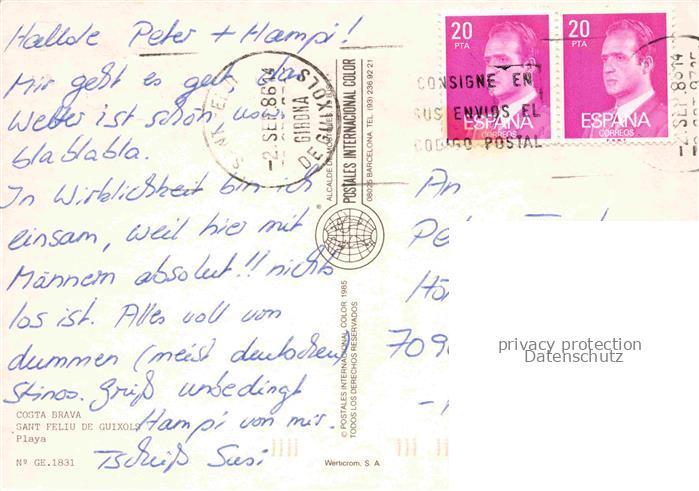 Hallöle Peter + Hampi!
Mir geht es gut, das
Wetter ist schön und
blablabla.
In Wirklichkeit bin ich
einsam, weil hier mit
Männern absolut!! nichts
los ist. Alles voll von
dummen (meist deutschen)
Stinos. Grüß unbedingt
Hampi von mir.
Tschüß Susi
COSTA BRAVA
SANT FELIU DE GUIXOLS
Playa
Nº GE.1831
-2.SEP.86 14
GIRONA
DE GUIXOLS
ALCALDE DE MOSTOLES
POSTALES INTERNACIONAL COLOR
08025 BARCELONA TEL. (93) 236 92 21
© POSTALES INTERNACIONAL COLOR 1985
TODOS LOS DERECHOS RESERVADOS
Werticrom, S. A.
20
PTA
ESPAÑA
CORREOS
20
PTA
ESPAÑA
CORREOS
CONSIGNE EN
SUS ENVIOS EL
CODIGO POSTAL
-2.SEP.86 14
An
709
privacy protection
Datenschutz